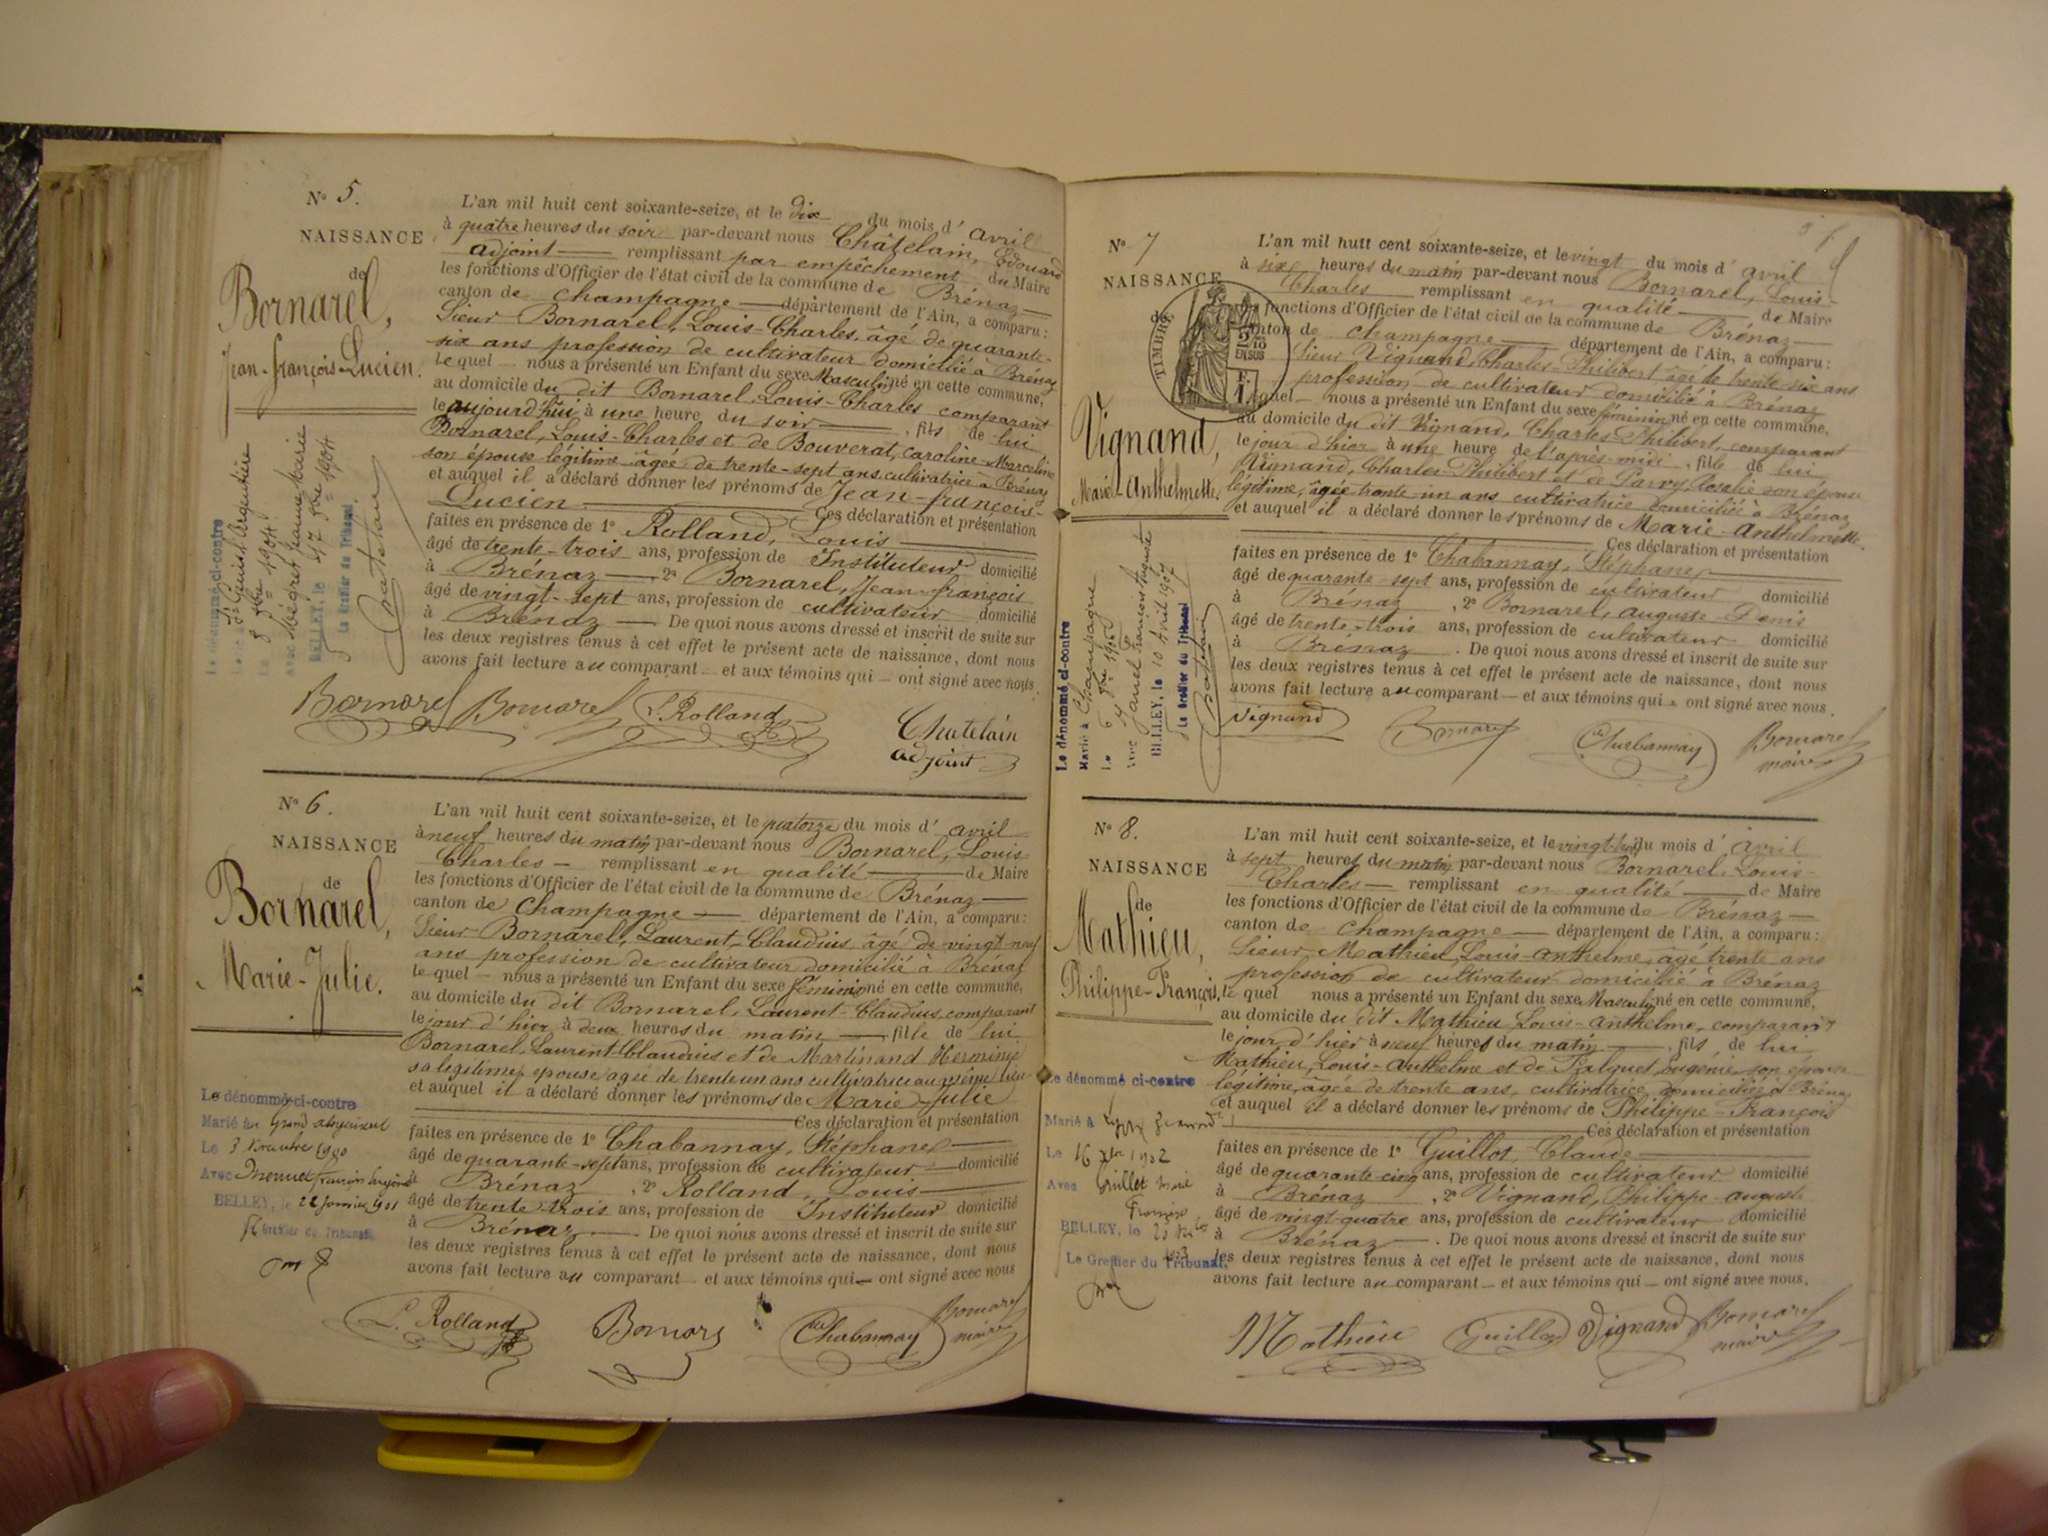 N° 5.
NAISSANCE
de
Bornarel,
Jean-François-Lucien.
L'an mil huit cent soixante-seize, et le dix du mois d'avril
à quatre heures du soir par-devant nous Châtelain, Edouard
adjoint remplissant par empêchement du Maire
les fonctions d'Officier de l'état civil de la commune de Brénaz
canton de Champagne département de l'Ain, a comparu:
Sieur Bornarel, Louis-Charles, âgé de quarante-
six ans profession de cultivateur domicilié à Brénaz
lequel nous a présenté un Enfant du sexe Masculin né en cette commune,
au domicile du dit Bornarel, Louis-Charles comparant
le aujourd'hui à une heure du soir, fils de lui
Bornarel, Louis-Charles et de Bouverat, Caroline-Marceline
son épouse légitime âgée de trente-sept ans cultivatrice à Brénaz
et auquel il a déclaré donner les prénoms de Jean-François-
Lucien Ces déclaration et présentation
faites en présence de 1° Rolland, Louis
âgé de trente-trois ans, profession de Instituteur domicilié
à Brénaz 2° Bornarel, Jean-François
âgé de vingt-sept ans, profession de cultivateur domicilié
à Brénaz De quoi nous avons dressé et inscrit de suite sur
les deux registres tenus à cet effet le présent acte de naissance, dont nous
avons fait lecture au comparant et aux témoins qui ont signé avec nous.
Le dénommé ci-contre
BELLEY, le
Le Greffier du Tribunal.
Bornarel Bornarel L. Rolland
Chatelain
adjoint
N° 6.
NAISSANCE
de
Bornarel,
Marie-Julie.
L'an mil huit cent soixante-seize, et le quatorze du mois d'avril
à neuf heures du matin par-devant nous Bornarel, Louis
Charles remplissant en qualité de Maire
les fonctions d'Officier de l'état civil de la commune de Brénaz
canton de Champagne département de l'Ain, a comparu:
Sieur Bornarel, Laurent-Claudius âgé de vingt-neuf
ans profession de cultivateur domicilié à Brénaz
lequel nous a présenté un Enfant du sexe féminin né en cette commune,
au domicile du dit Bornarel, Laurent-Claudius, comparant
le jour d'hier à deux heures du matin fille de lui
Bornarel, Laurent Claudius et de Martinand Herminie
sa légitime épouse âgée de trente un ans cultivatrice au même lieu
et auquel il a déclaré donner les prénoms de Marie-Julie
Ces déclaration et présentation
faites en présence de 1° Chabannay, Stéphane
âgé de quarante-sept ans, profession de cultivateur domicilié
à Brénaz, 2° Rolland, Louis
âgé de trente trois ans, profession de Instituteur domicilié
à Brénaz. De quoi nous avons dressé et inscrit de suite sur
les deux registres tenus à cet effet le présent acte de naissance, dont nous
avons fait lecture au comparant et aux témoins qui ont signé avec nous
Le dénommé ci-contre
Marié au Grand
Le 3 1900
Avec
BELLEY, le 22 Janvier 1901
L. Rolland Bornarel Chabannay Bornarel
maire
N° 7
NAISSANCE
de
TIMBRE
Vignand,
Marie-Anthelmette.
L'an mil huit cent soixante-seize, et le vingt du mois d'avril
à six heures du matin par-devant nous Bornarel, Louis-
Charles remplissant en qualité de Maire
les fonctions d'Officier de l'état civil de la commune de Brénaz
canton de Champagne département de l'Ain, a comparu:
Sieur Vignand, Charles-Philibert âgé de trente-six ans
profession de cultivateur domicilié à Brénaz
lequel nous a présenté un Enfant du sexe féminin né en cette commune,
au domicile du dit Vignand, Charles-Philibert, comparant
le jour d'hier à une heure de l'après-midi, fille de lui
Vignand, Charles-Philibert et de Rosalie son épouse
légitime, âgée trente-un ans cultivatrice domiciliée à Brénaz
et auquel il a déclaré donner les prénoms de Marie-Anthelmette.
Ces déclaration et présentation
faites en présence de 1° Chabannay, Stéphane
âgé de quarante-sept ans, profession de cultivateur domicilié
à Brénaz, 2° Bornarel, Auguste-Denis
âgé de trente-trois ans, profession de cultivateur domicilié
à Brénaz. De quoi nous avons dressé et inscrit de suite sur
les deux registres tenus à cet effet le présent acte de naissance, dont nous
avons fait lecture au comparant et aux témoins qui ont signé avec nous.
Le dénommé ci-contre
Marié à Champagne
BELLEY, le 10 Avril 1907
Le Greffier du Tribunal
Vignand Bornarel Chabannay Bornarel
maire
N° 8.
NAISSANCE
de
Mathieu,
Philippe-François.
L'an mil huit cent soixante-seize, et le du mois d'avril
à sept heures du matin par-devant nous Bornarel, Louis-
Charles remplissant en qualité de Maire
les fonctions d'Officier de l'état civil de la commune de Brénaz
canton de Champagne département de l'Ain, a comparu:
Sieur Mathieu, Louis-Anthelme, âgé trente ans
profession de cultivateur domicilié à Brénaz
lequel nous a présenté un Enfant du sexe Masculin né en cette commune,
au domicile du dit Mathieu Louis-Anthelme, comparant
le jour d'hier à neuf heures du matin, fils de lui
Mathieu, Louis-Anthelme et de Eugénie son épouse
légitime, âgée de trente ans, cultivatrice domiciliée à Brénaz
et auquel il a déclaré donner les prénoms de Philippe-François
Ces déclaration et présentation
faites en présence de 1° Guillot, Claude
âgé de quarante-cinq ans, profession de cultivateur domicilié
à Brénaz, 2° Vignand, Philippe-Auguste
âgé de vingt-quatre ans, profession de cultivateur domicilié
à Brénaz. De quoi nous avons dressé et inscrit de suite sur
les deux registres tenus à cet effet le présent acte de naissance, dont nous
avons fait lecture au comparant et aux témoins qui ont signé avec nous.
Le dénommé ci-contre
Marié à Lyon
Le 16 1902
Avec Guillet
BELLEY, le
Le Greffier du Tribunal.
Mathieu Guillot Vignand Bornarel
maire